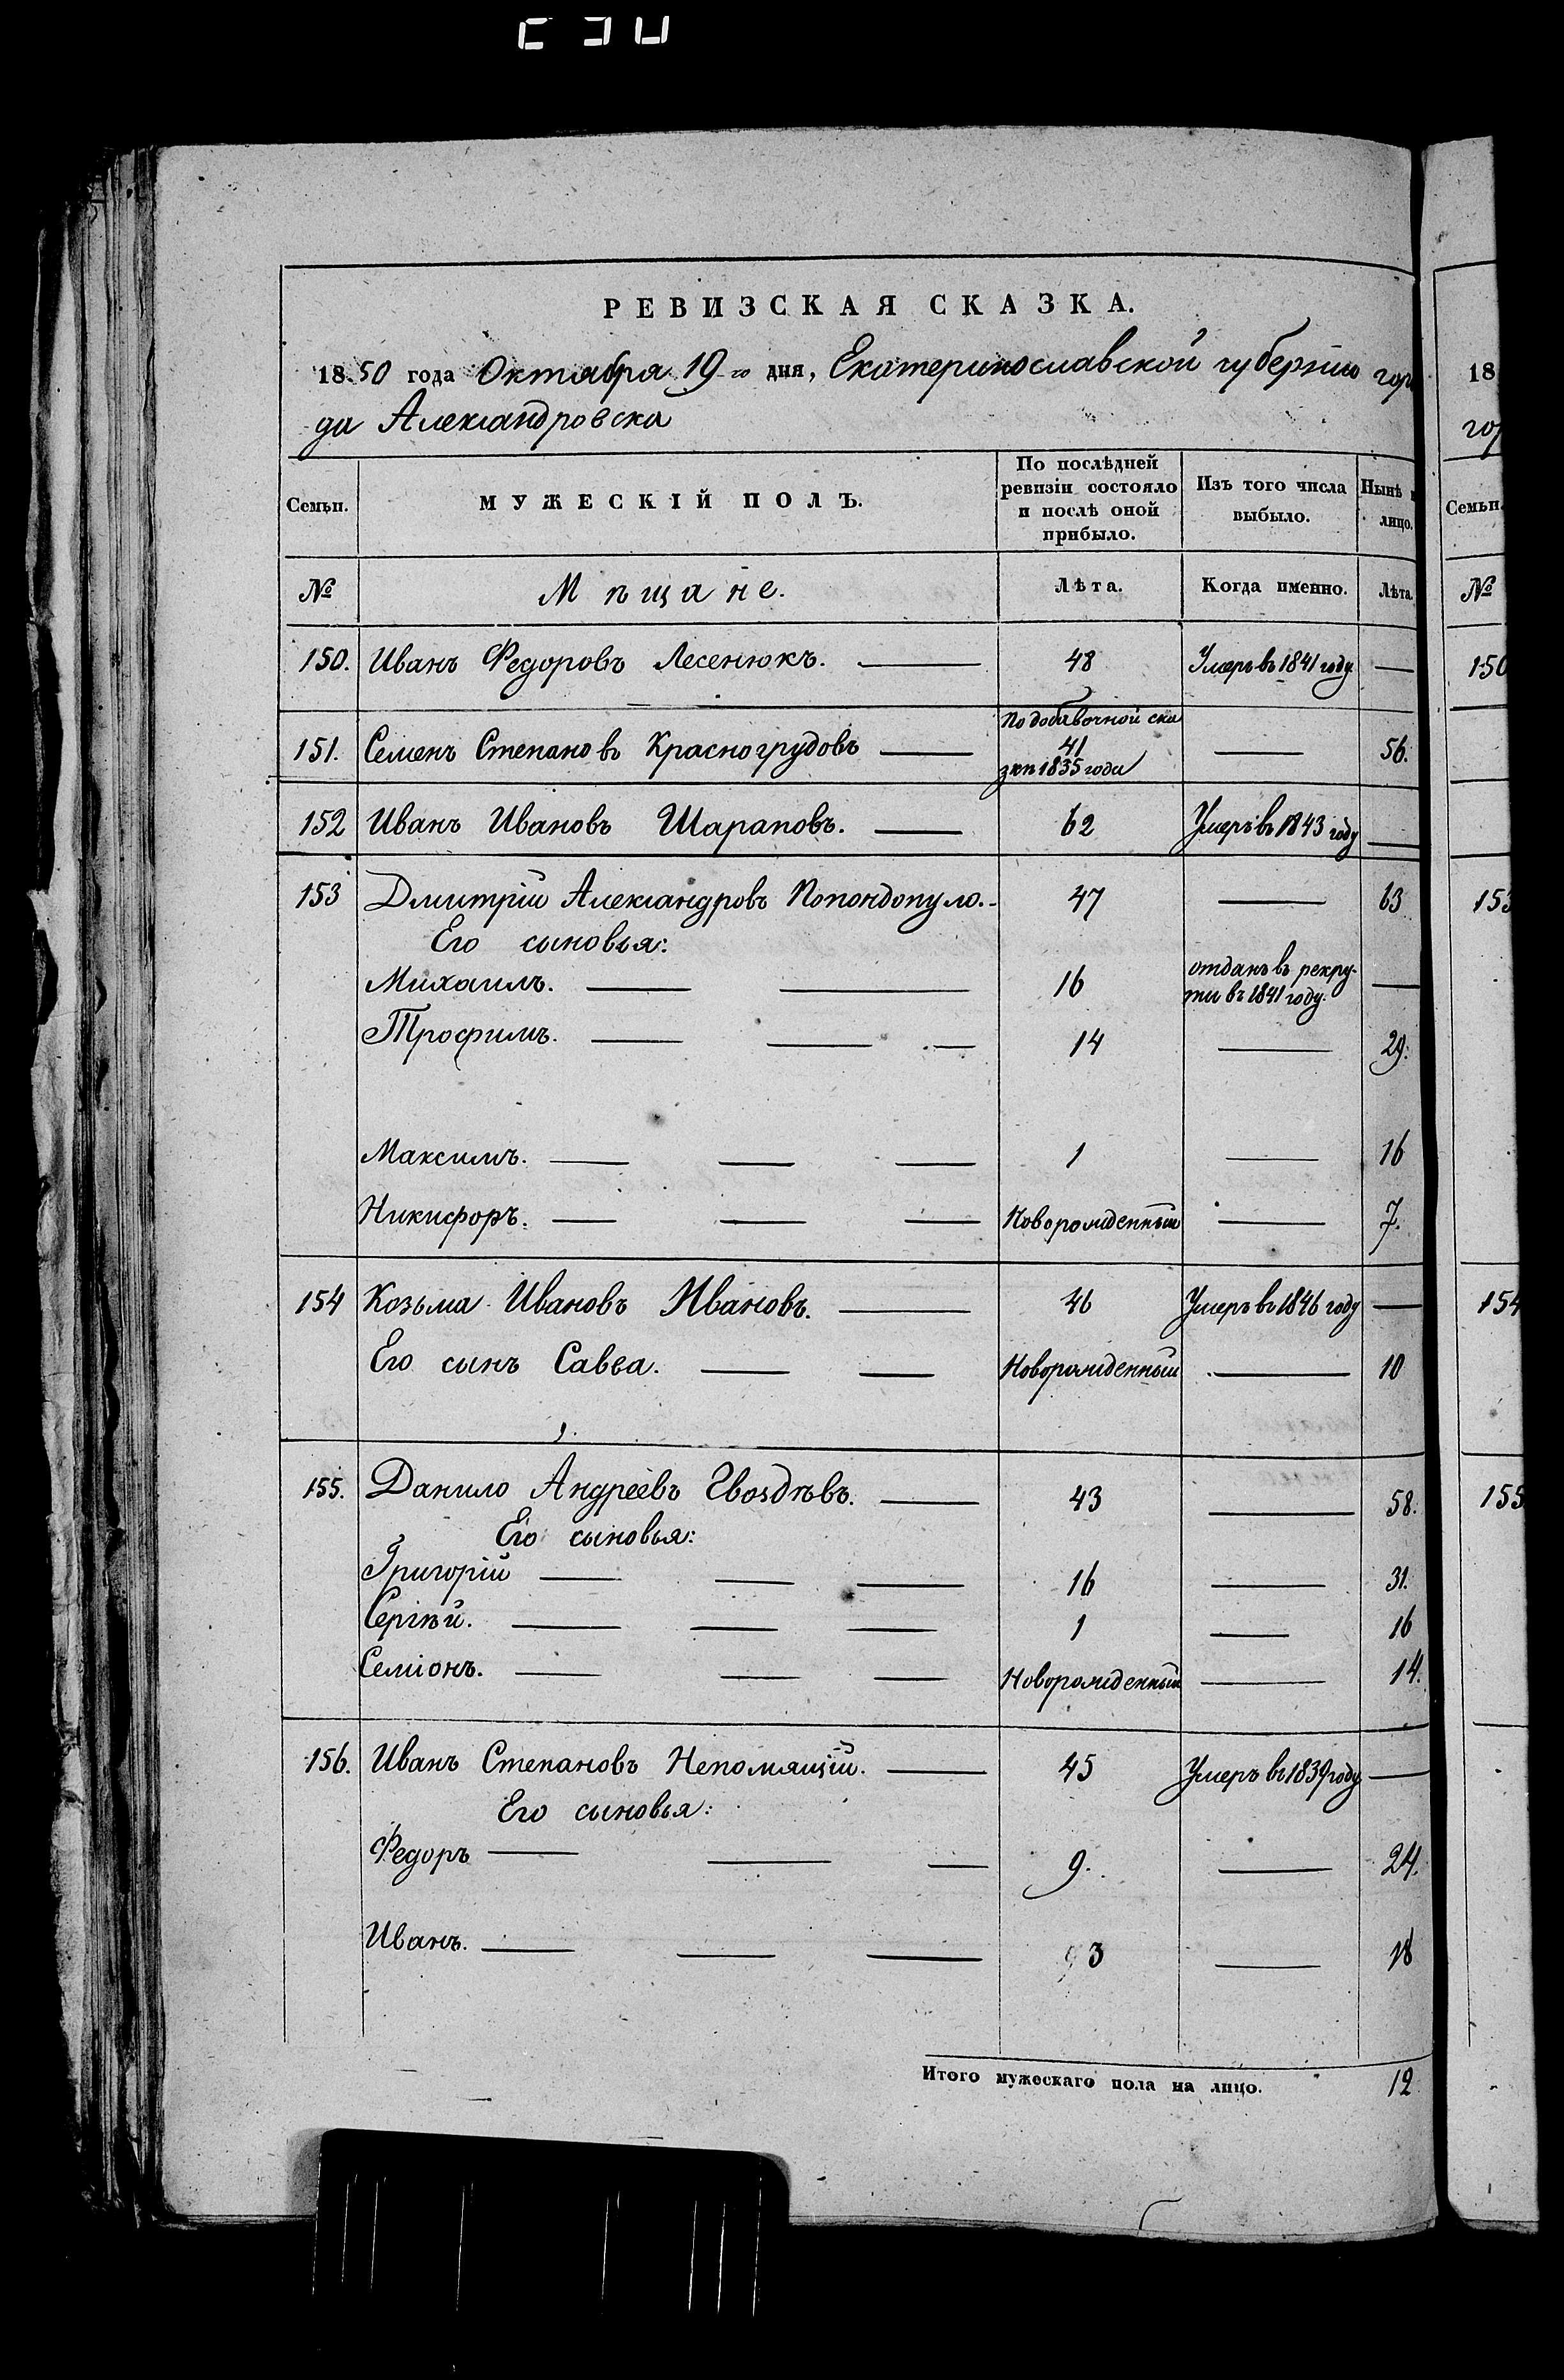 РЕВИЗСКАЯ СКАЗКА.
1850 года Октября 19го дня, Екатеринославской губерніи горо
да Александровска
Семьи. МУЖЕСКІЙ ПОЛЪ. По послѣдней ревизіи состояло и послѣ оной прибыло. Изъ того числа выбыло. Нынѣ на лицо.
№ Мѣщане. Лѣта. Когда именно. Лѣта.
150. Иванъ Федоровъ Лесенюкъ. — 48 Умеръ въ 1841 году —
151. Семенъ Степановъ Красногрудовъ — По добавочной ска 41 зкѣ 1835 года — 56.
152 Иванъ Ивановъ Шараповъ. — 62 Умеръ въ 1843 году —
153 Дмитрій Александровъ Попондопуло. - 47 — 63
Его сыновья:
Михаилъ. — — 16 отданъ въ рекру- ты въ 1841 году. —
Трофимъ. — — — 14 — 29.
Максимъ. — — — 1 — 16
Никифоръ. — — — Новорожденный — 7.
154 Козьма Ивановъ Ивановъ. — 46 Умеръ въ 1846 году —
Его сынъ Савва. — — Новорожденный — 10
155. Данило Андреевъ Гвоздѣвъ. — 43 — 58.
Его сыновья:
Григорій — — — 16 — 31.
Сергѣй. — — — 1 — 16
Семіонъ. — — — Новорожденный — 14.
156. Иванъ Степановъ Непомящій. — 45 Умеръ въ 1839 году —
Его сыновья:
Федоръ — — — 9. — 24.
Иванъ. — — — 3 — 18
Итого мужескаго пола на лицо. 12
18
гор
Семьи.
№
150
153
154
155